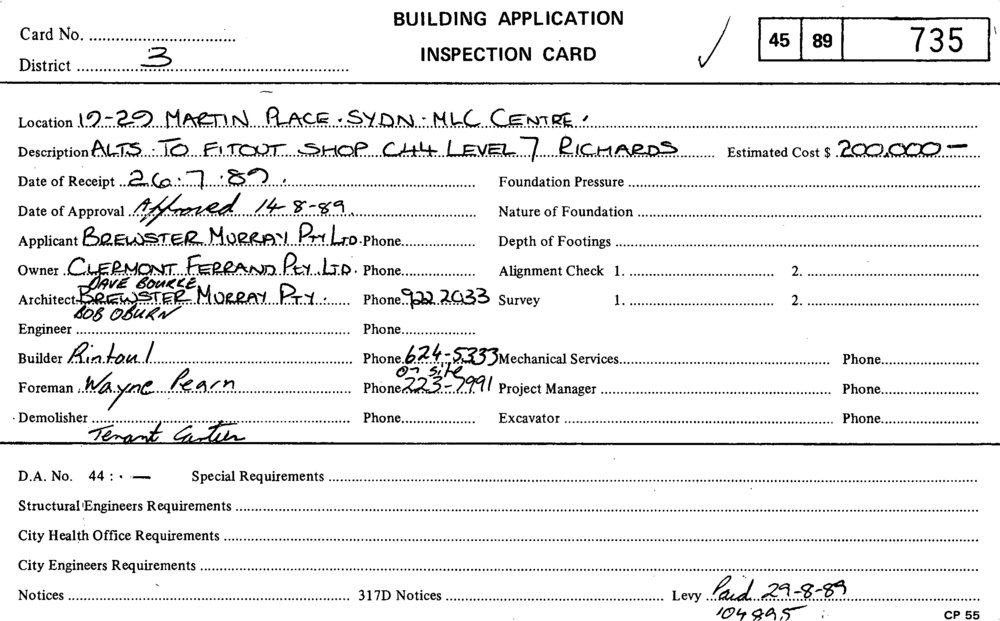 BUILDING APPLICATION
INSPECTION CARD
Card No.
District 3
45 89 735
Location 19-29 MARTIN PLACE. SYDN. MLC CENTRE.
Description ALTS. TO FITOUT SHOP CH4 LEVEL 7 RICHARDS Estimated Cost $ 200,000 —
Date of Receipt 26.7.89. Foundation Pressure
Date of Approval Approved 14-8-89. Nature of Foundation
Applicant BREWSTER MURRAY PTY LTD. Phone Depth of Footings
Owner CLERMONT FERRAND PTY. LTD. Phone Alignment Check 1. 2.
DAVE BOURKE
Architect BREWSTER MURRAY PTY. Phone 922 2033 Survey 1. 2.
BOB OBURN
Engineer Phone
Builder Rintoul Phone 624-5333 Mechanical Services Phone
on site
Foreman Wayne Pearn Phone 223-7991 Project Manager Phone
Demolisher Phone Excavator Phone
Tenant Cartier
D.A. No. 44 : · — Special Requirements
Structural Engineers Requirements
City Health Office Requirements
City Engineers Requirements
Notices 317D Notices Levy Paid 29-8-89
104895
CP 55